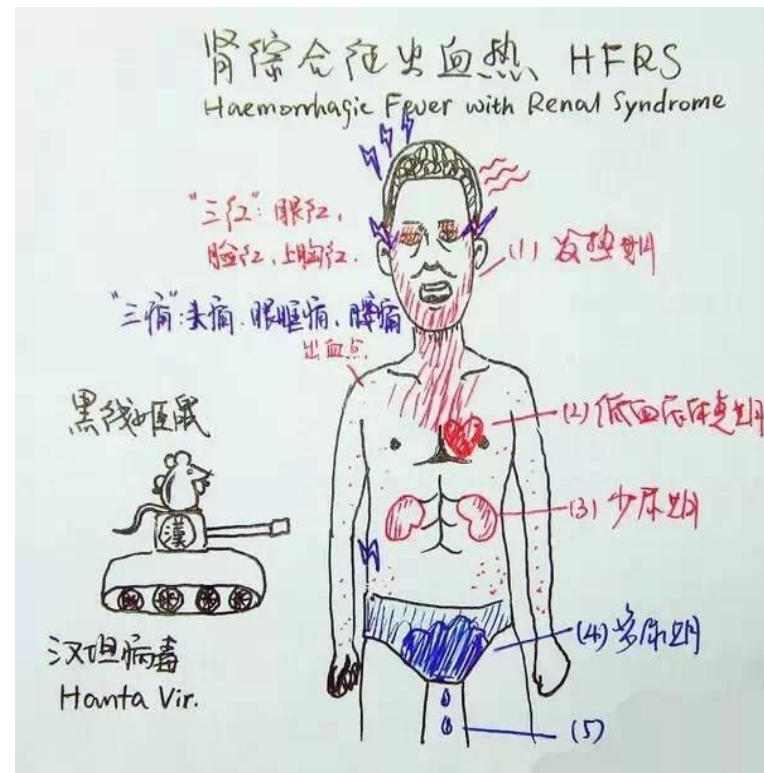 肾综合征出血热 HFRS
Haemorrhagic Fever with Renal Syndrome
"三红":眼红、
脸红、上胸红.
(1) 发热期
"三痛":头痛.眼眶痛、腰痛
出血点
黑线姬鼠
(2) 低血压休克期
(3) 少尿期
漢
(4) 多尿期
汉坦病毒
Hanta Vir.
(5)